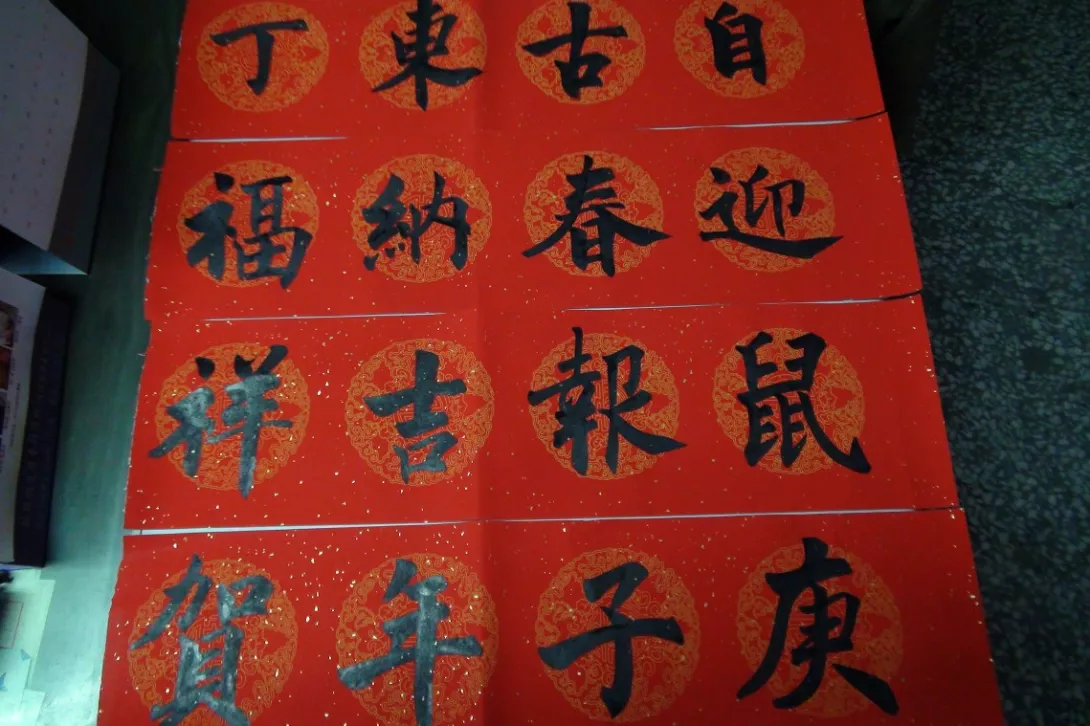 自古東丁
迎春納福
鼠報吉祥
庚子年賀